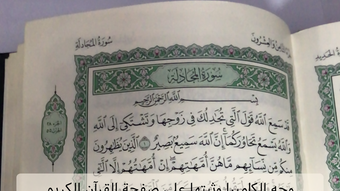 سُورَةُ المُجَادلة
وَالعِشْرُون
سُورَةُ المُجَادلة
بِسْمِ ٱللَّهِ ٱلرَّحْمَٰنِ ٱلرَّحِيمِ
قَدْ سَمِعَ ٱللَّهُ قَوْلَ ٱلَّتِي تُجَٰدِلُكَ فِي زَوْجِهَا وَتَشْتَكِيٓ إِلَى ٱللَّهِ
وَٱللَّهُ يَسْمَعُ تَحَاوُرَكُمَآ إِنَّ ٱللَّهَ سَمِيعُۢ بَصِيرٌ ١ ٱلَّذِينَ يُظَٰهِرُونَ
مِنكُم مِّن نِّسَآئِهِم مَّا هُنَّ أُمَّهَٰتِهِمْ إِنْ أُمَّهَٰتُهُمْ إِلَّا ٱلَّٰٓـِٔي
وجه الكاميرا وثبتها على صفحة القرآن الكريم